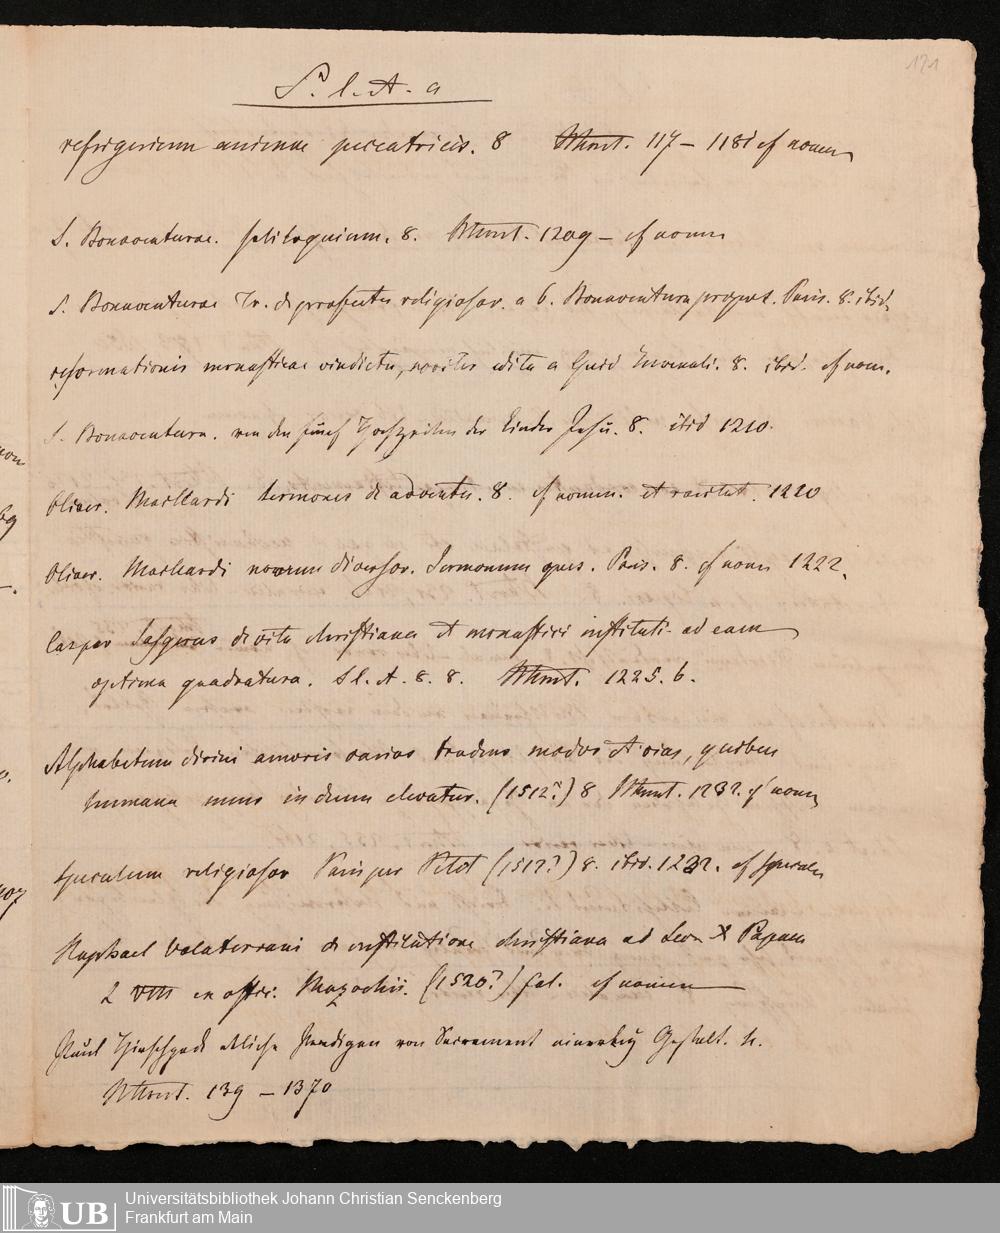 171
S. l. et. a
refrigerium animae peccatricis. 8 117 – 118 cf nomen
S. Bonaventurae. soliloquium. 8. 1209 – cf nomen
S. Bonaventurae Tr. de profectu religiosor. a b. Bonaventura Paris. 8. ibid.
reformationis monasticae vindictae, noviter edita a Guid Juvenali. 8. ibid. cf nom.
S. Bonaventura. von den fünf Hochzeiten der Kinder Jesu. 8. ibid 1210.
Oliver. Maillardi Sermones de adventu. 8. cf nomen. 1220
Oliver. Maillardi novum diversor. Sermonum opus. Paris. 8. cf nomen 1222.
Caspar Sasgerus de vita christiana et monastici instituti ad eam
optima quadratura. S l. et. a. 8. 1225. b.
Alphabetum divini amoris varios tradens modos et vias, quibus
humana mens in deum elevatur. (1512?) 8 1232. cf nomen
Speculum religiosor Paris per Petit (1512?) 8. ibid. 1232. cf Speculum
Raphael Volaterrani de institutione christiana ad Leon X Papam
L VIII ex offic. Mazochii. (1520?) fol. cf nomen
Paul etliche Predigen vom Sacrament einerley Gestalt. 4.
139 – 1370
Universitätsbibliothek Johann Christian Senckenberg
Frankfurt am Main
UB